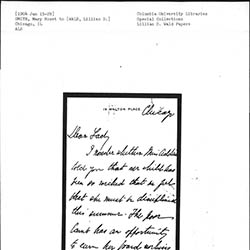 [1904 Jan 15-29]
SMITH, Mary Rozet to [WALD, Lillian D.]
Chicago, IL
ALS
Columbia University Libraries
Special Collections
Lillian D. Wald Papers
19 WALTON PLACE
Chicago
Dear Lady
I wonder whether Miss Addams
told you that our child has
been so wicked that
she must be disciplined
this summer. The poor
has an opportunity
to earn her board